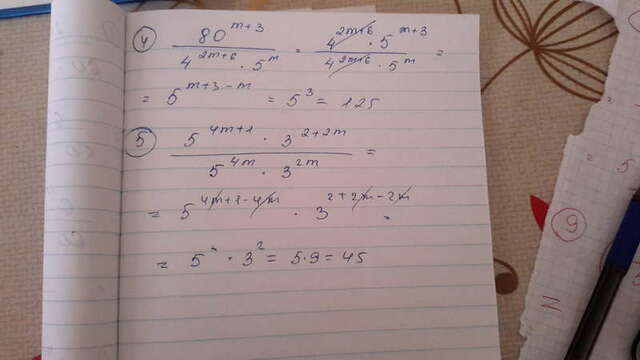 ④ 80^(m+3) / (4^(2m+6) · 5^m) = (4^(2m+6) · 5^(m+3)) / (4^(2m+6) · 5^m) =
= 5^(m+3-m) = 5^3 = 125
⑤ (5^(4m+1) · 3^(2+2m)) / (5^(4m) · 3^(2m)) =
= 5^(4m+1-4m) · 3^(2+2m-2m) =
= 5^1 · 3^2 = 5·9 = 45
= 5
⑨